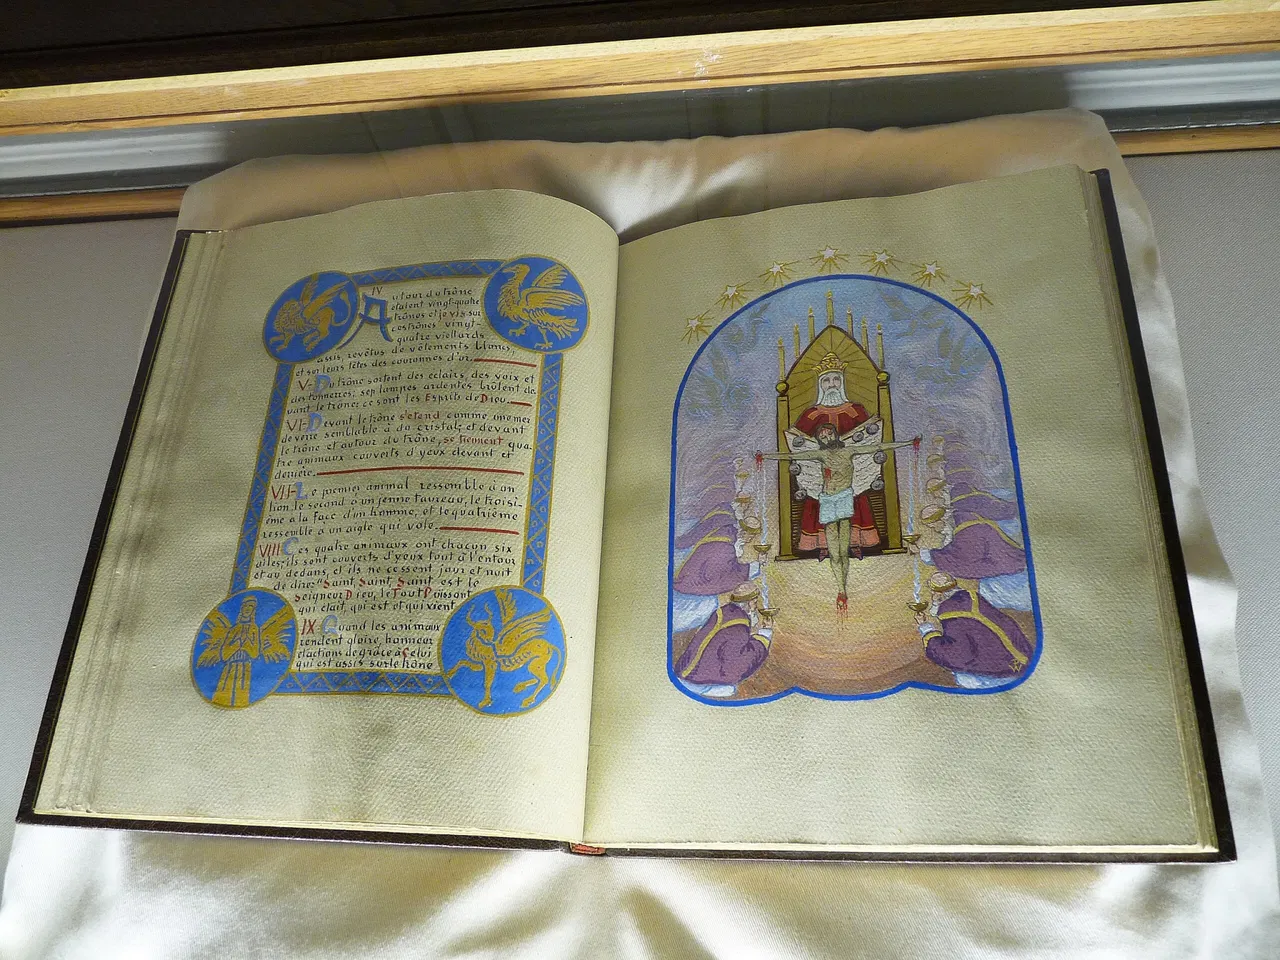 IV
Autour du trône
étaient vingt-quatre
trônes et je vis sur
ces trônes vingt-
quatre vieillards
assis, revêtus de vêtements blancs,
et sur leurs têtes des couronnes d'or.
V-Du trône sortent des eclairs, des voix et
des tonnerres; sep lampes ardentes brûlent de
vant le trône: ce sont les Esprits de Dieu.
VI-Devant le trône s'etend comme une mer
de verre semblable à du cristal; et devant
le trône et autour du trône, se tiennent qua
tre animaux couverts d'yeux devant et
derrière.
VII-Le premier animal ressemble à un
lion, le second à un jeune taureau, le troisi-
ème a la face d'un homme, et le quatrième
ressemble à un aigle qui vole.
VIII Ces quatre animaux ont chacun six
ailes; ils sont couverts d'yeux tout à l'entour
et au dedans, et ils ne cessent jour et nuit
de dire: "Saint, Saint, Saint est le
Seigneur Dieu, le Tout Puissant
qui était, qui est et qui vient
IX-Quand les animaux
rendent gloire, honneur
et actions de grâce à Celui
qui est assis sur le trône